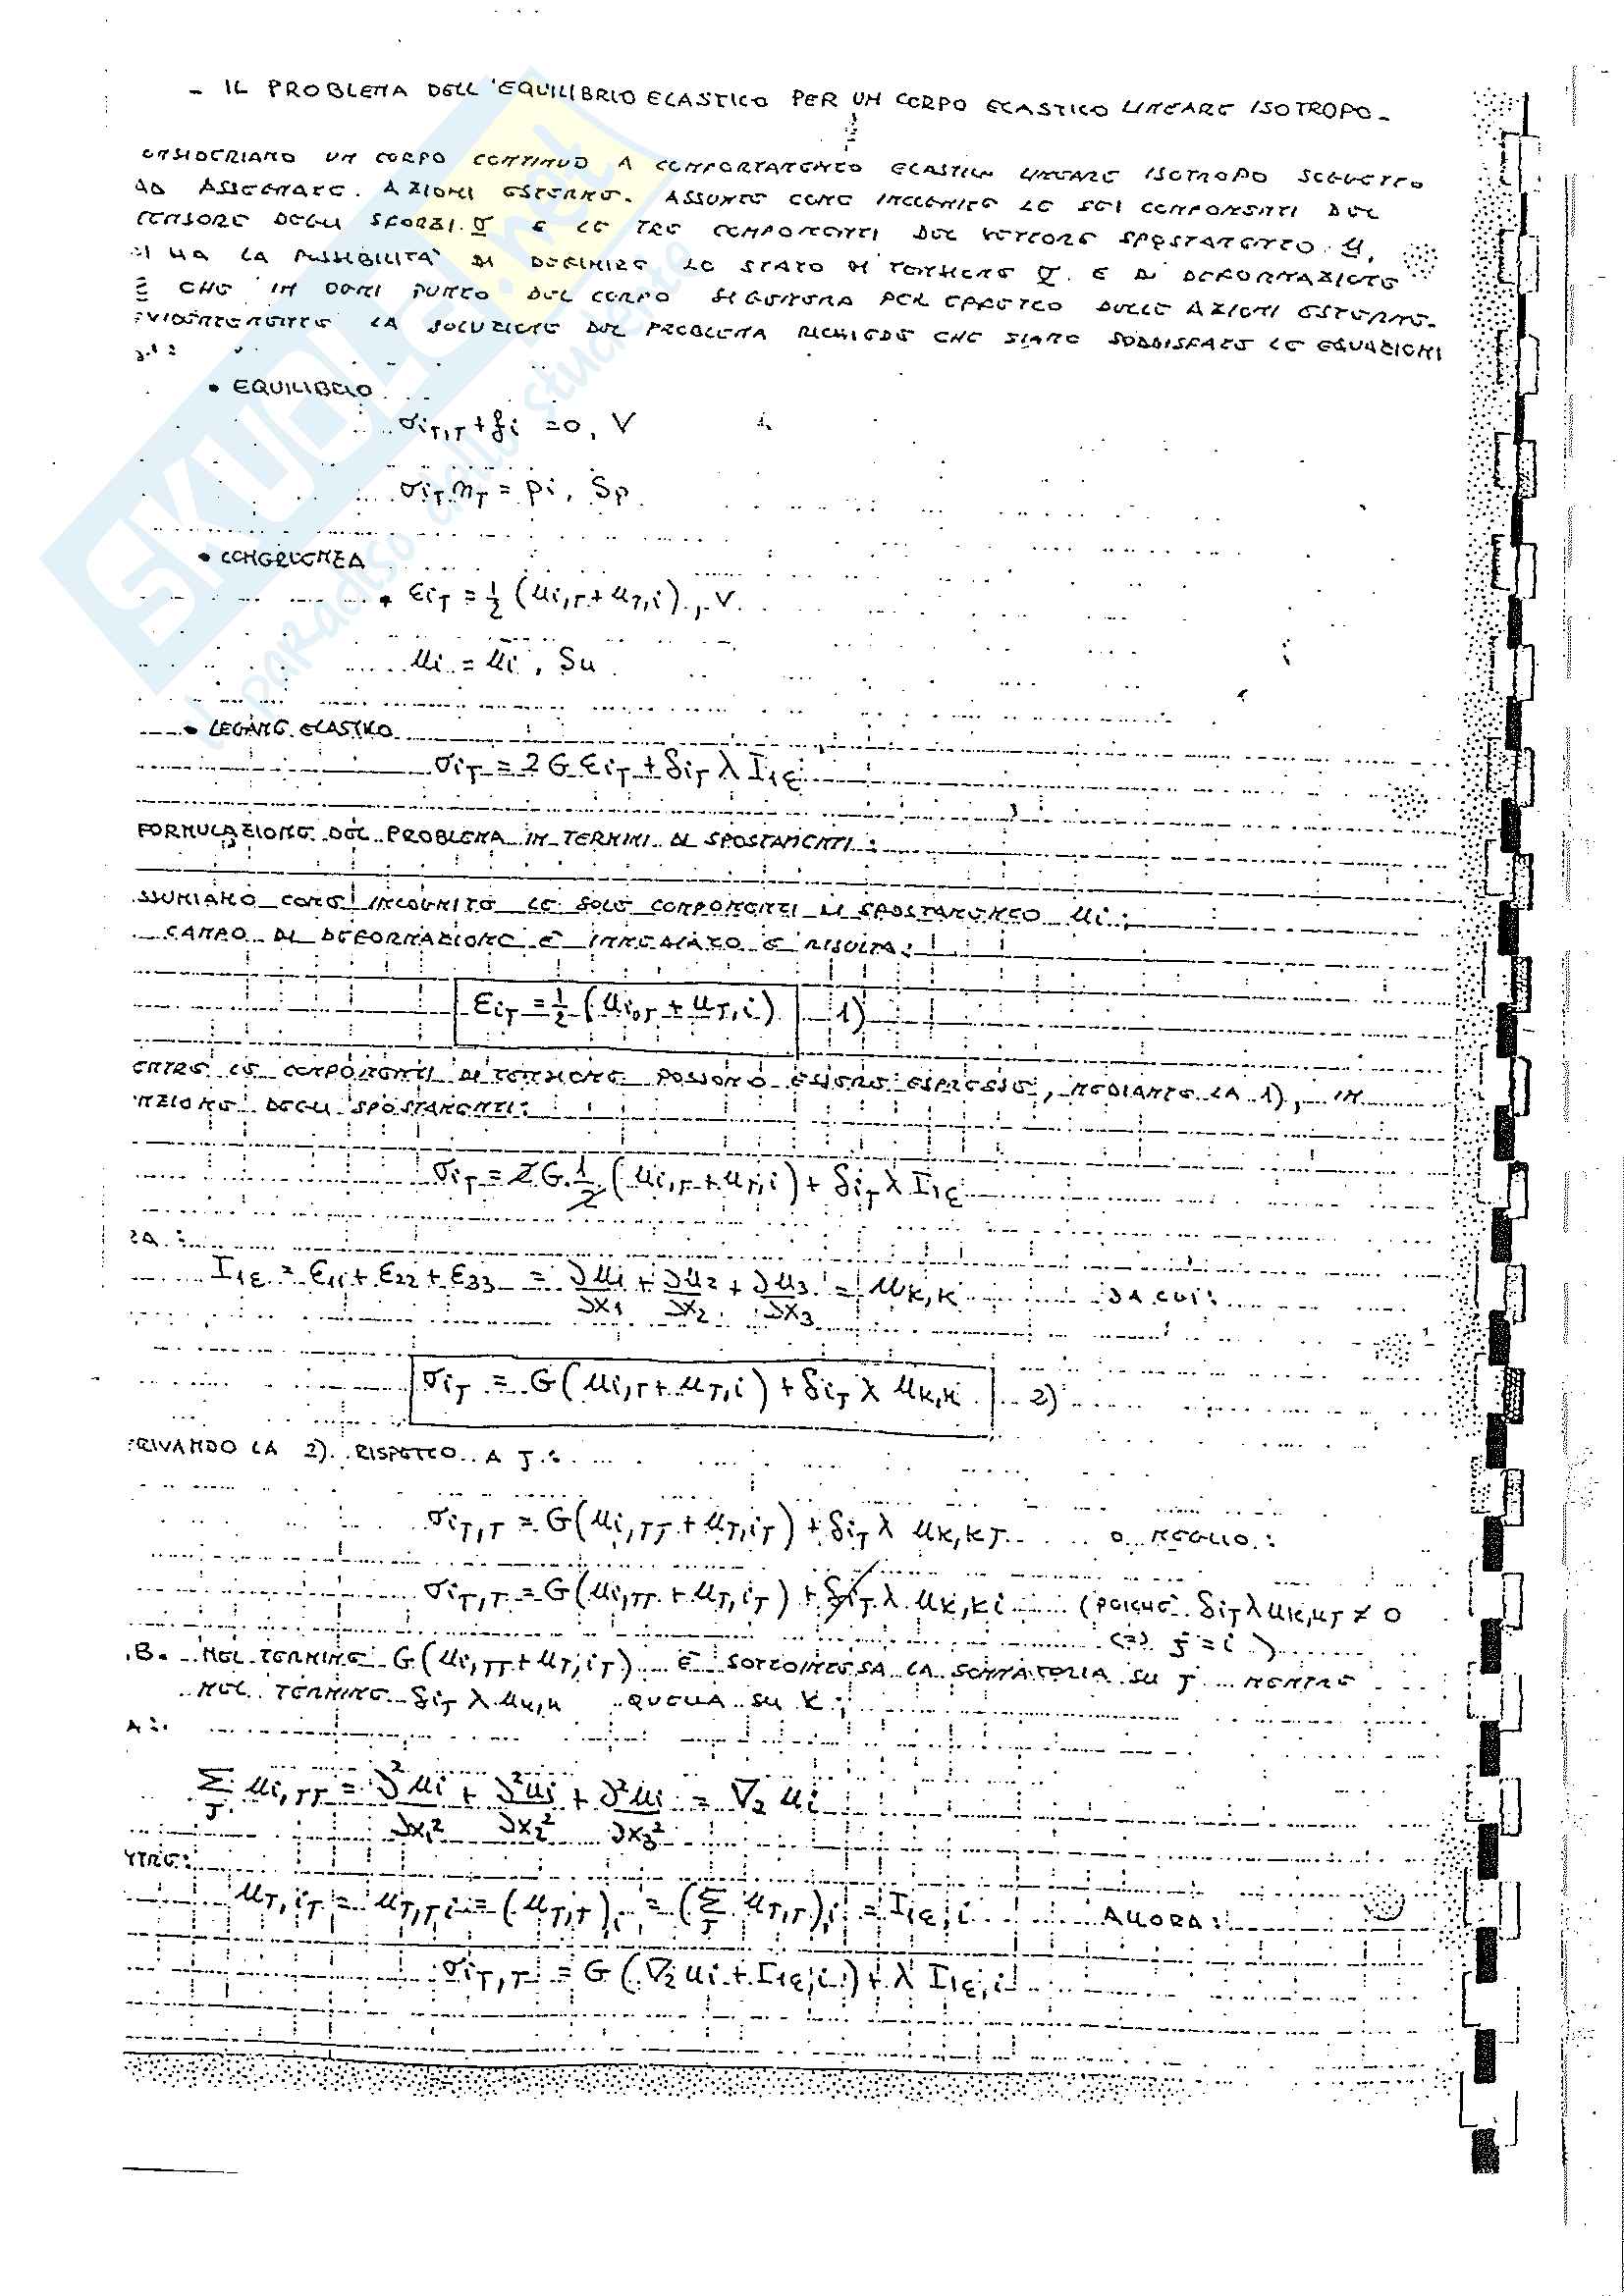 - IL PROBLEMA DELL'EQUILIBRIO ELASTICO PER UN CORPO ELASTICO LINEARE ISOTROPO -
ONSIDERIAMO UN CORPO CONTINUO A COMPORTAMENTO ELASTICO LINEARE ISOTROPO SOGGETTO
AD ASSEGNATE AZIONI ESTERNE. ASSUNTE COME INCOGNITE LE SEI COMPONENTI DEL
TENSORE DEGLI SFORZI σ E LE TRE COMPONENTI DEL VETTORE SPOSTAMENTO u,
SI HA LA POSSIBILITA' DI DEFINIRE LO STATO DI TENSIONE σ E DI DEFORMAZIONE
ε CHE IN OGNI PUNTO DEL CORPO SI GENERA PER EFFETTO DELLE AZIONI ESTERNE.
EVIDENTEMENTE LA SOLUZIONE DEL PROBLEMA RICHIEDE CHE SIANO SODDISFATTE LE EQUAZIONI
• EQUILIBRIO
σij,j + fi = 0, V
σij nj = pi, Sp
• CONGRUENZA
• εij = 1/2 (ui,j + uj,i), V
ui = ui, Su
• LEGAME ELASTICO
σij = 2G εij + δij λ I1ε
FORMULAZIONE DEL PROBLEMA IN TERMINI DI SPOSTAMENTI:
SSUMIAMO COME INCOGNITE LE SOLE COMPONENTI DI SPOSTAMENTO ui;
CAMPO DI DEFORMAZIONE E' IMMEDIATO E RISULTA:
εij = 1/2 (ui,j + uj,i) 1)
ENTRE LE COMPONENTI DI TENSIONE POSSONO ESSERE ESPRESSE, MEDIANTE LA 1), IN
NZIONE DEGLI SPOSTAMENTI:
σij = 2G 1/2 (ui,j + uj,i) + δij λ I1ε
RA:
I1ε = ε11 + ε22 + ε33 = ∂u1/∂x1 + ∂u2/∂x2 + ∂u3/∂x3 = uk,k DA CUI:
σij = G(ui,j + uj,i) + δij λ uk,k 2)
ERIVANDO LA 2) RISPETTO A J:
σij,j = G(ui,jj + uj,ij) + δij λ uk,kj O MEGLIO:
σij,j = G(ui,jj + uj,ij) + δij λ uk,ki (POICHE' δij λ uk,kj ≠ 0
(=) j = i)
.B. NEL TERMINE G(ui,jj + uj,ij) E' SOTTOINTESA LA SOMMATORIA SU J MENTRE
NEL TERMINE δij λ uk,k QUELLA SU K;
A:
Σj ui,jj = ∂²ui/∂x1² + ∂²ui/∂x2² + ∂²ui/∂x3² = ∇2 ui
NTRE:
uj,ij = uj,ji = (uj,j),i = (Σj uj,j),i = I1ε,i ALLORA:
σij,j = G(∇2 ui + I1ε,i) + λ I1ε,i
SKUOLA.net
il paradiso dello studente